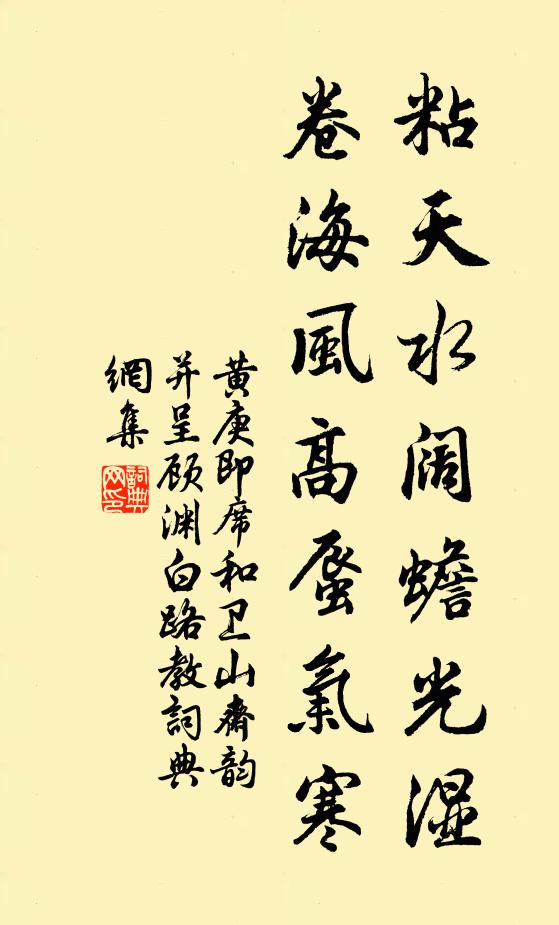 粘天水阔蟾光湿
卷海風高蜃氣寒
黄庚即席和卫山齋韵
并呈顾渊白路教詞典
網集
詞典
网印